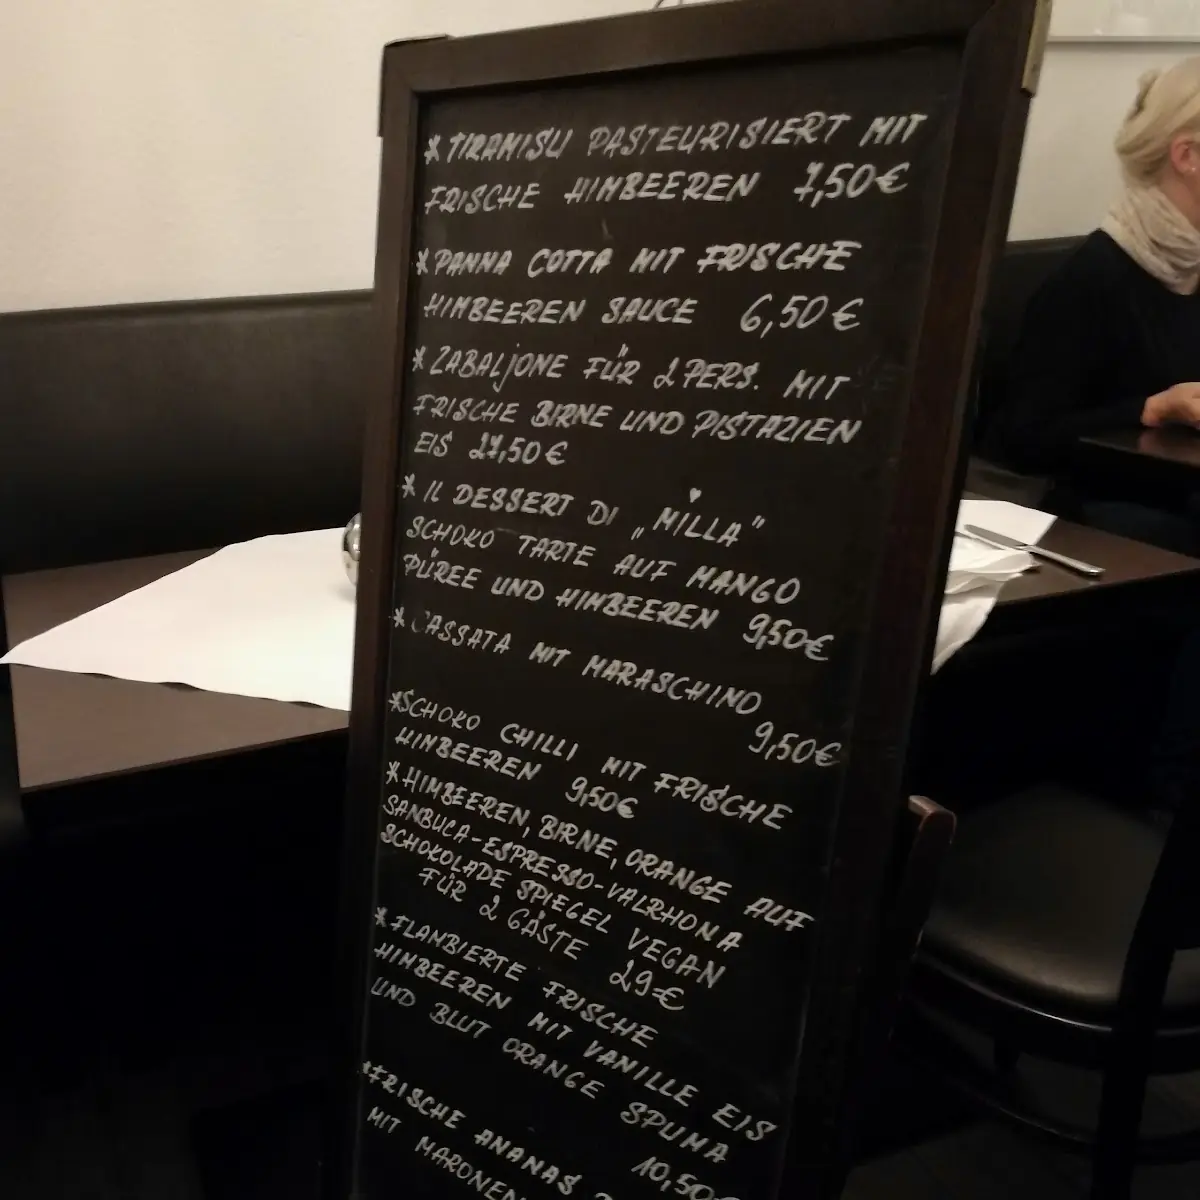 * TIRAMISU PASTEURISIERT MIT
FRISCHE HIMBEEREN 7,50€
* PANNA COTTA MIT FRISCHE
HIMBEEREN SAUCE 6,50€
* ZABALJONE FÜR 2 PERS. MIT
FRISCHE BIRNE UND PISTAZIEN
EIS 27,50€
* IL DESSERT DI „MILLA"
SCHOKO TARTE AUF MANGO
PÜREE UND HIMBEEREN 9,50€
* CASSATA MIT MARASCHINO
9,50€
* SCHOKO CHILLI MIT FRISCHE
HIMBEEREN 9,50€
* HIMBEEREN, BIRNE, ORANGE AUF
SANBUCA-ESPRESSO-VALRHONA
SCHOKOLADE SPIEGEL VEGAN
FÜR 2 GÄSTE 29€
* FLAMBIERTE FRISCHE
HIMBEEREN MIT VANILLE EIS
UND BLUT ORANGE SPUMA
10,50€
* FRISCHE ANANAS
MIT MARONEN